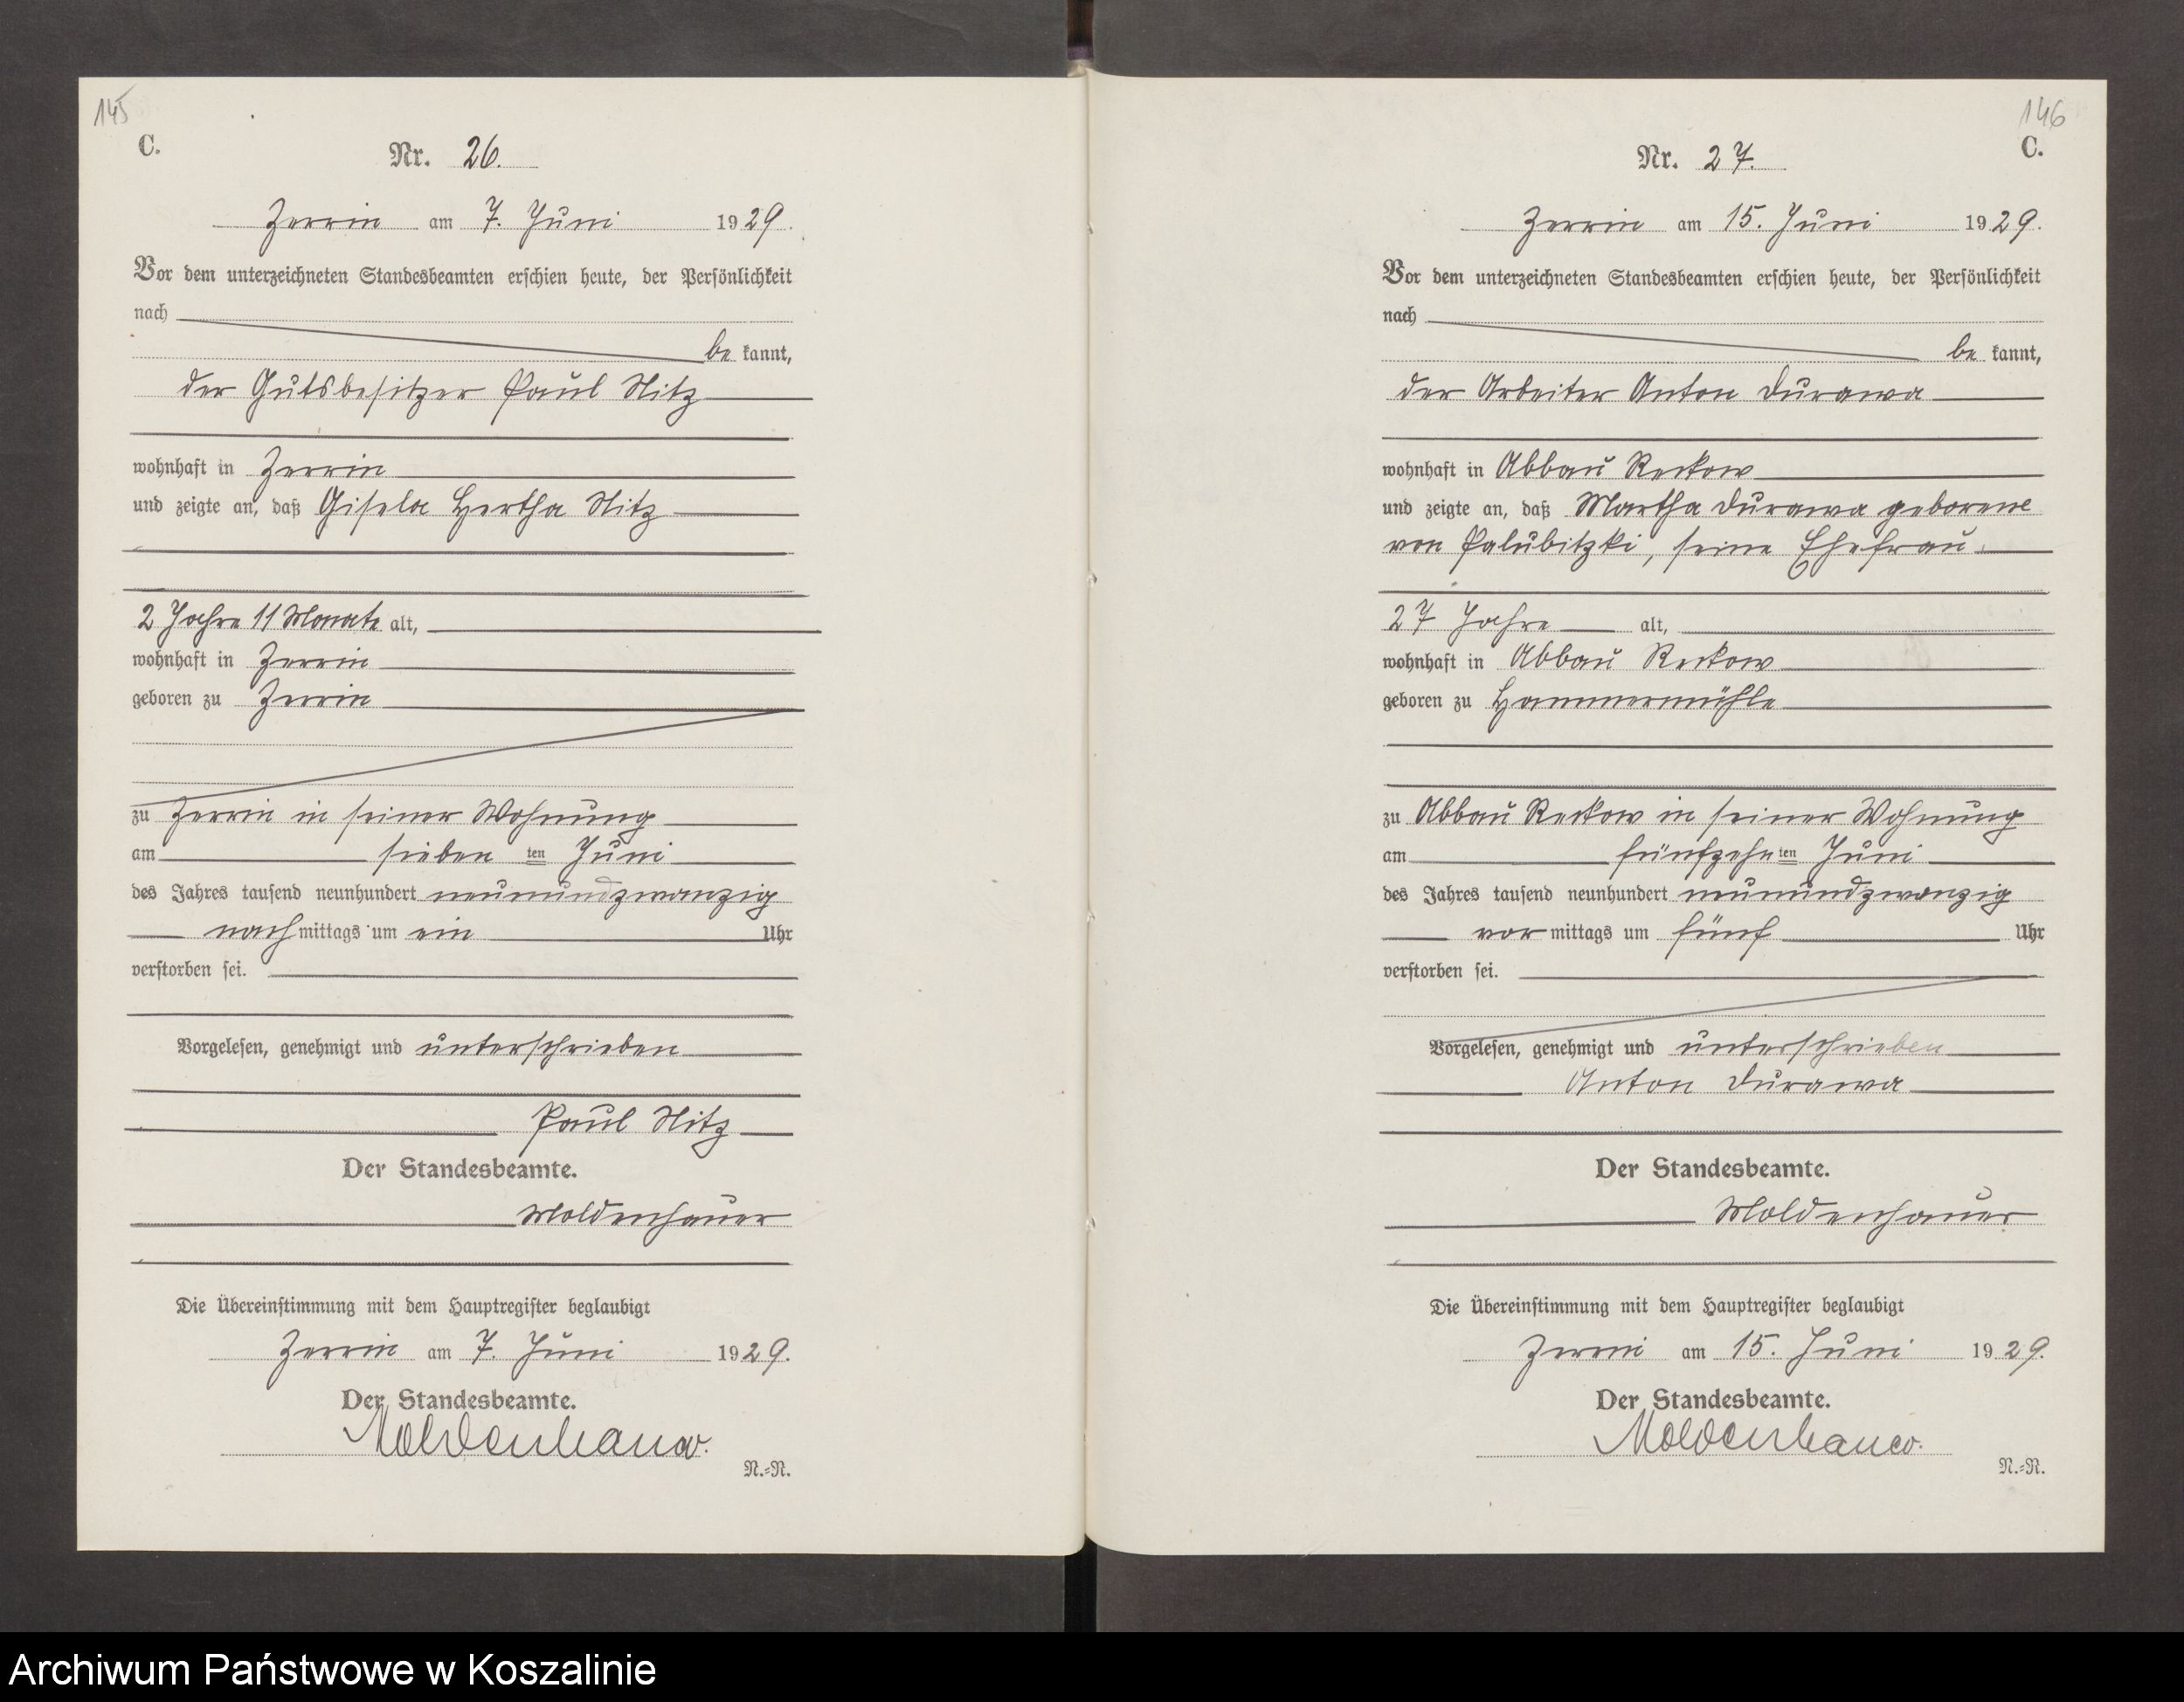 145
C.
Nr. 26.
Zerrin am 7. Juni 1929.
Vor dem unterzeichneten Standesbeamten erschien heute, der Persönlichkeit
nach
be kannt,
der Gutsbesitzer Paul Nitz
wohnhaft in Zerrin
und zeigte an, daß Gisela Hertha Nitz
2 Jahre 11 Monate alt,
wohnhaft in Zerrin
geboren zu Zerrin
zu Zerrin in seiner Wohnung
am sieben ten Juni
des Jahres tausend neunhundert neunundzwanzig
nach mittags um ein Uhr
verstorben sei.
Vorgelesen, genehmigt und unterschrieben
Paul Nitz
Der Standesbeamte.
Moldenhauer
Die Übereinstimmung mit dem Hauptregister beglaubigt
Zerrin am 7. Juni 1929.
Der Standesbeamte.
Moldenhauer.
N.=R.
146
C.
Nr. 27.
Zerrin am 15. Juni 1929.
Vor dem unterzeichneten Standesbeamten erschien heute, der Persönlichkeit
nach
be kannt,
der Arbeiter Anton Durawa
wohnhaft in Abbau Reckow
und zeigte an, daß Martha Durawa geborene
von Palubitzki, seine Ehefrau.
27 Jahre alt,
wohnhaft in Abbau Reckow
geboren zu Hammermühle
zu Abbau Reckow in seiner Wohnung
am fünfzehn ten Juni
des Jahres tausend neunhundert neunundzwanzig
vor mittags um fünf Uhr
verstorben sei.
Vorgelesen, genehmigt und unterschrieben
Anton Durawa
Der Standesbeamte.
Moldenhauer
Die Übereinstimmung mit dem Hauptregister beglaubigt
Zerrin am 15. Juni 1929.
Der Standesbeamte.
Moldenhauer.
N.=R.
Archiwum Państwowe w Koszalinie